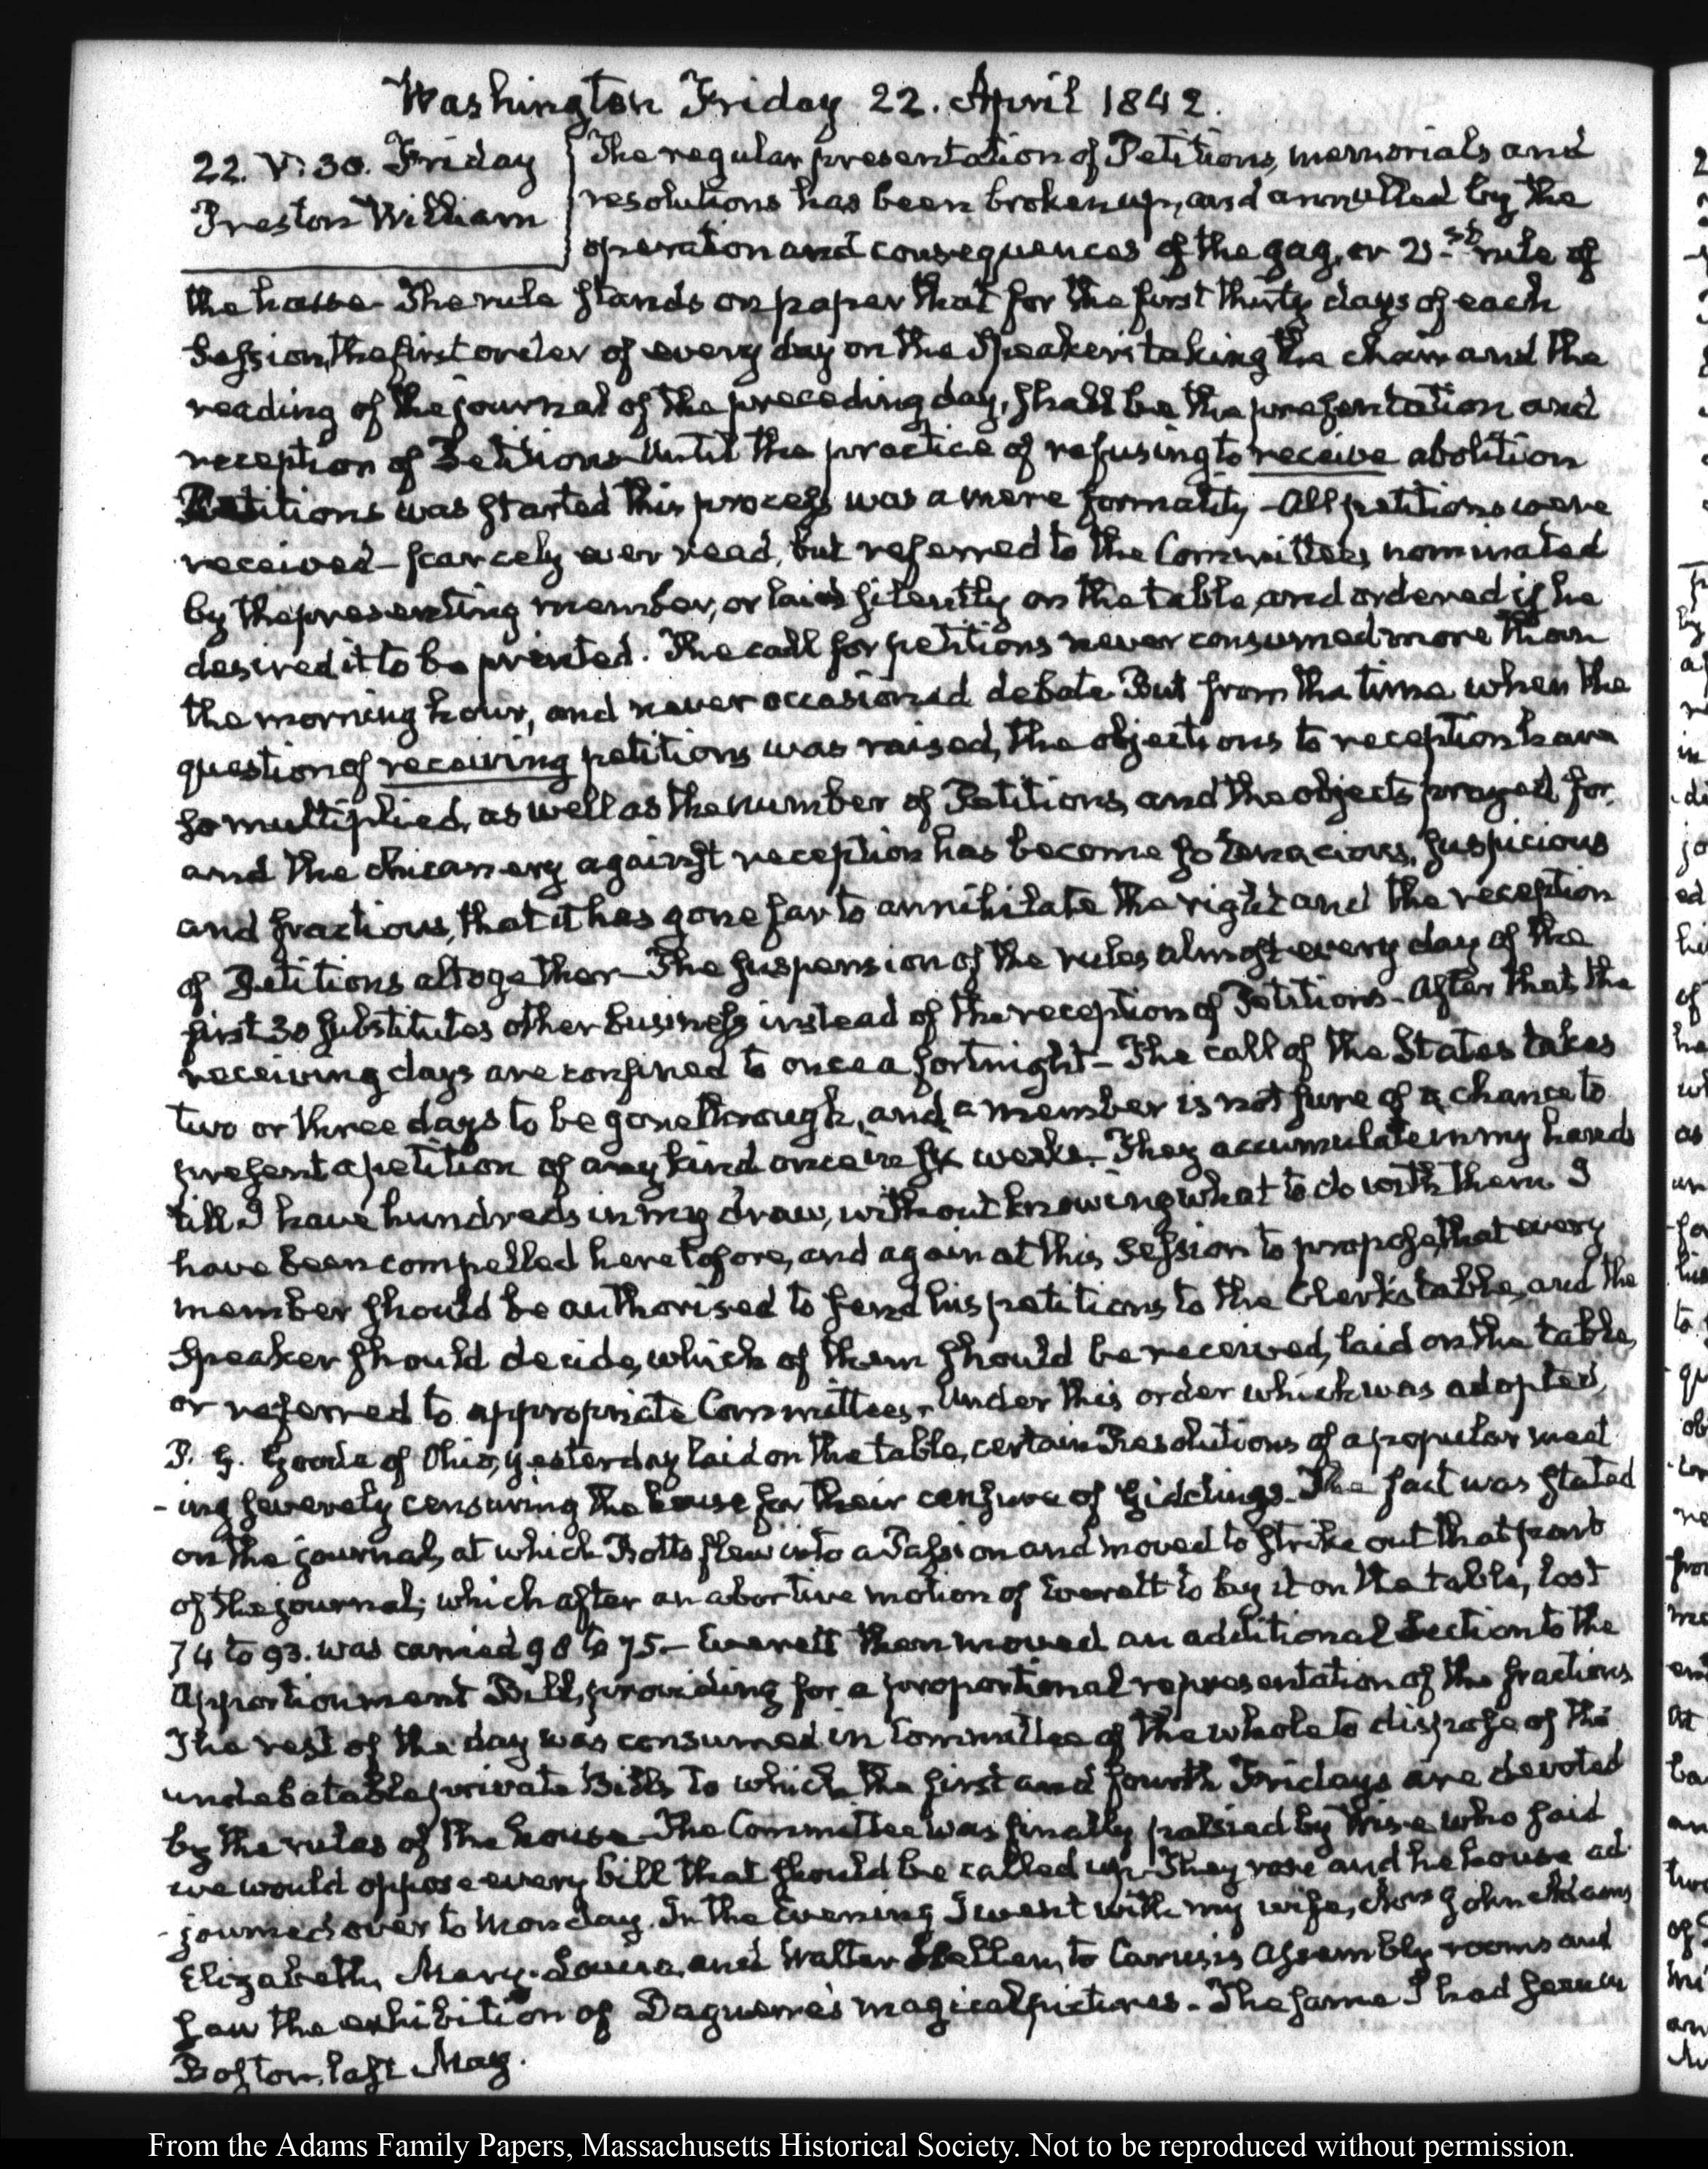 Washington Friday 22. April 1842.
22. V: 30. Friday
Preston William
The regular presentation of Petitions, memorials and
resolutions has been broken up, and annulled by the
operation and consequences of the gag, or 21st rule of
the house. The rule stands on paper that for the first thirty days of each
Session, the first order of every day on the Speaker's taking the chair and the
reading of the journal of the preceding day, shall be the presentation and
reception of Petitions. Until the practice of refusing to receive abolition
Petitions was started this process was a mere formality - All petitions were
received - scarcely ever read, but referred to the Committees nominated
by the presenting member, or laid silently on the table, and ordered if he
desired it to be printed. The call for petitions never consumed more than
the morning hour, and never occasioned debate. But from the time when the
question of receiving petitions was raised, the objections to reception have
so multiplied, as well as the number of Petitions, and the objects prayed for,
and the chicanery against reception has become so tenacious, suspicious
and fractious, that it has gone far to annihilate the right and the reception
of Petitions altogether - The suspension of the rules almost every day of the
first 30 substitutes other business instead of the reception of Petitions - After that, the
receiving days are confined to once a fortnight - The call of the States takes
two or three days to be gone through, and a member is not sure of a chance to
present a petition of any kind once in six weeks. They accumulate in my hands
till I have hundreds in my draw, without knowing what to do with them. I
have been compelled heretofore, and again at this Session to propose, that every
member should be authorised to send his petitions to the Clerk's table, and the
Speaker should decide, which of them should be received, laid on the table,
or referred to appropriate Committees. Under this order which was adopted,
P. G. Goode of Ohio, yesterday laid on the table, certain Resolutions of a popular meet
-ing severely censuring the house for their censure of Giddings. The fact was stated
on the journal, at which Botts flew into a Passion and moved to strike out that part
of the journal; which after an abortive motion of Everett to lay it on the table, lost
74 to 93. was carried 98 to 75 - Everett then moved an additional Section to the
Apportionment Bill, providing for a proportional representation of the fractions
The rest of the day was consumed in Committee of the whole to dispose of the
undebatable private Bills to which the first and fourth Fridays are devoted
by the rules of the house - The Committee was finally palsied by Wise who said
we would oppose every bill that should be called up - They rose and he house ad
-journed over to Monday. In the Evening I went with my wife, Mrs John Adams
Elizabeth, Mary-Louisa, and Walter Hellen, to Carusi's Assembly rooms and
saw the exhibition of Daguerre's magical pictures - The same I had seen in
Boston, last May.
From the Adams Family Papers, Massachusetts Historical Society. Not to be reproduced without permission.